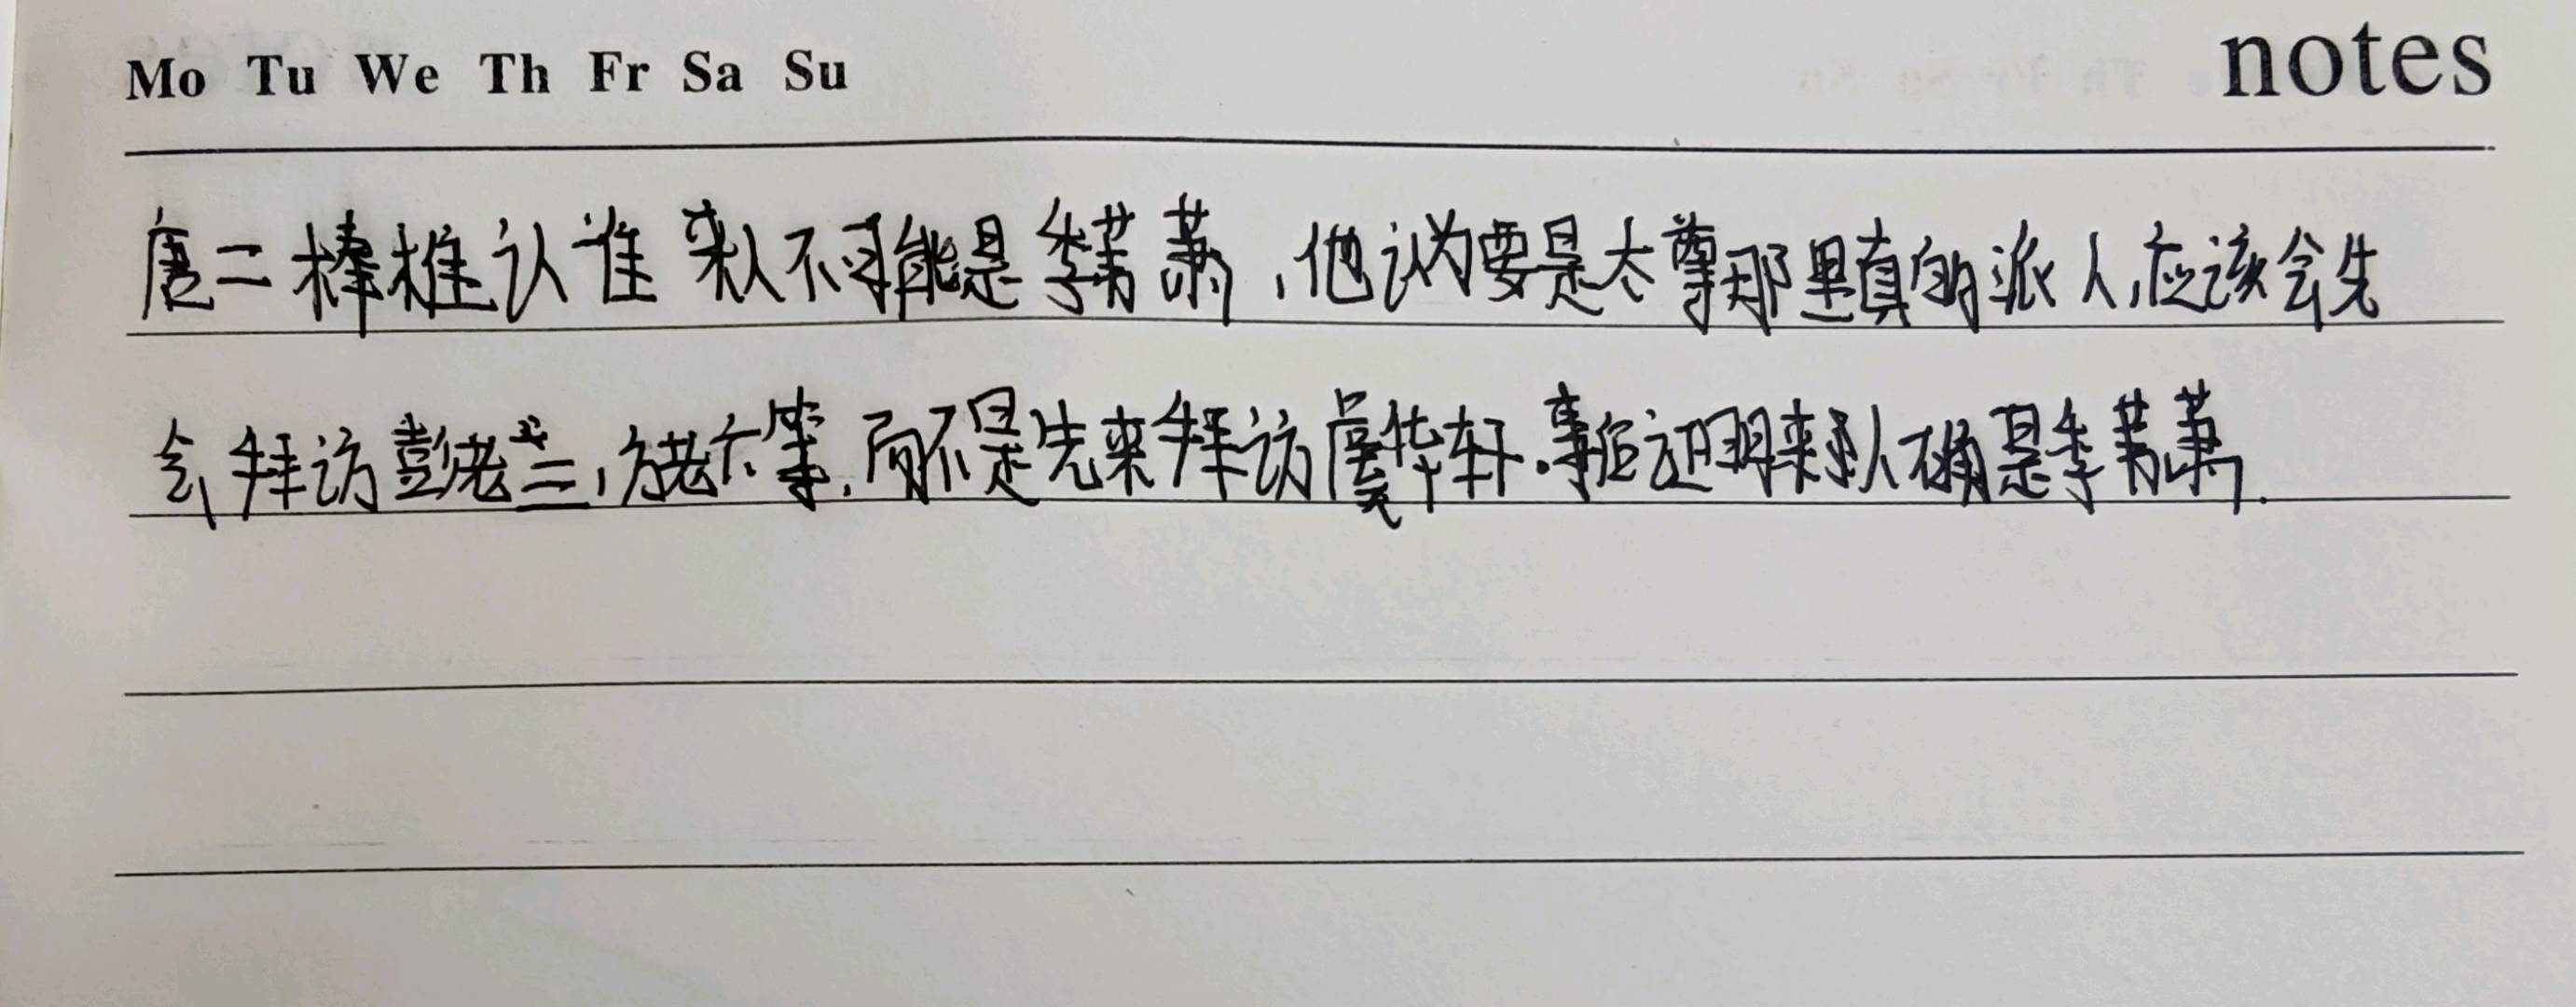 Mo Tu We Th Fr Sa Su
notes
唐二棒椎认准来人不可能是季苇萧，他认为要是太尊那里真的派人，应该会先
会拜访彭老三，方老六等，而不是先来拜访虞华轩。事后证明来人不确是季苇萧。